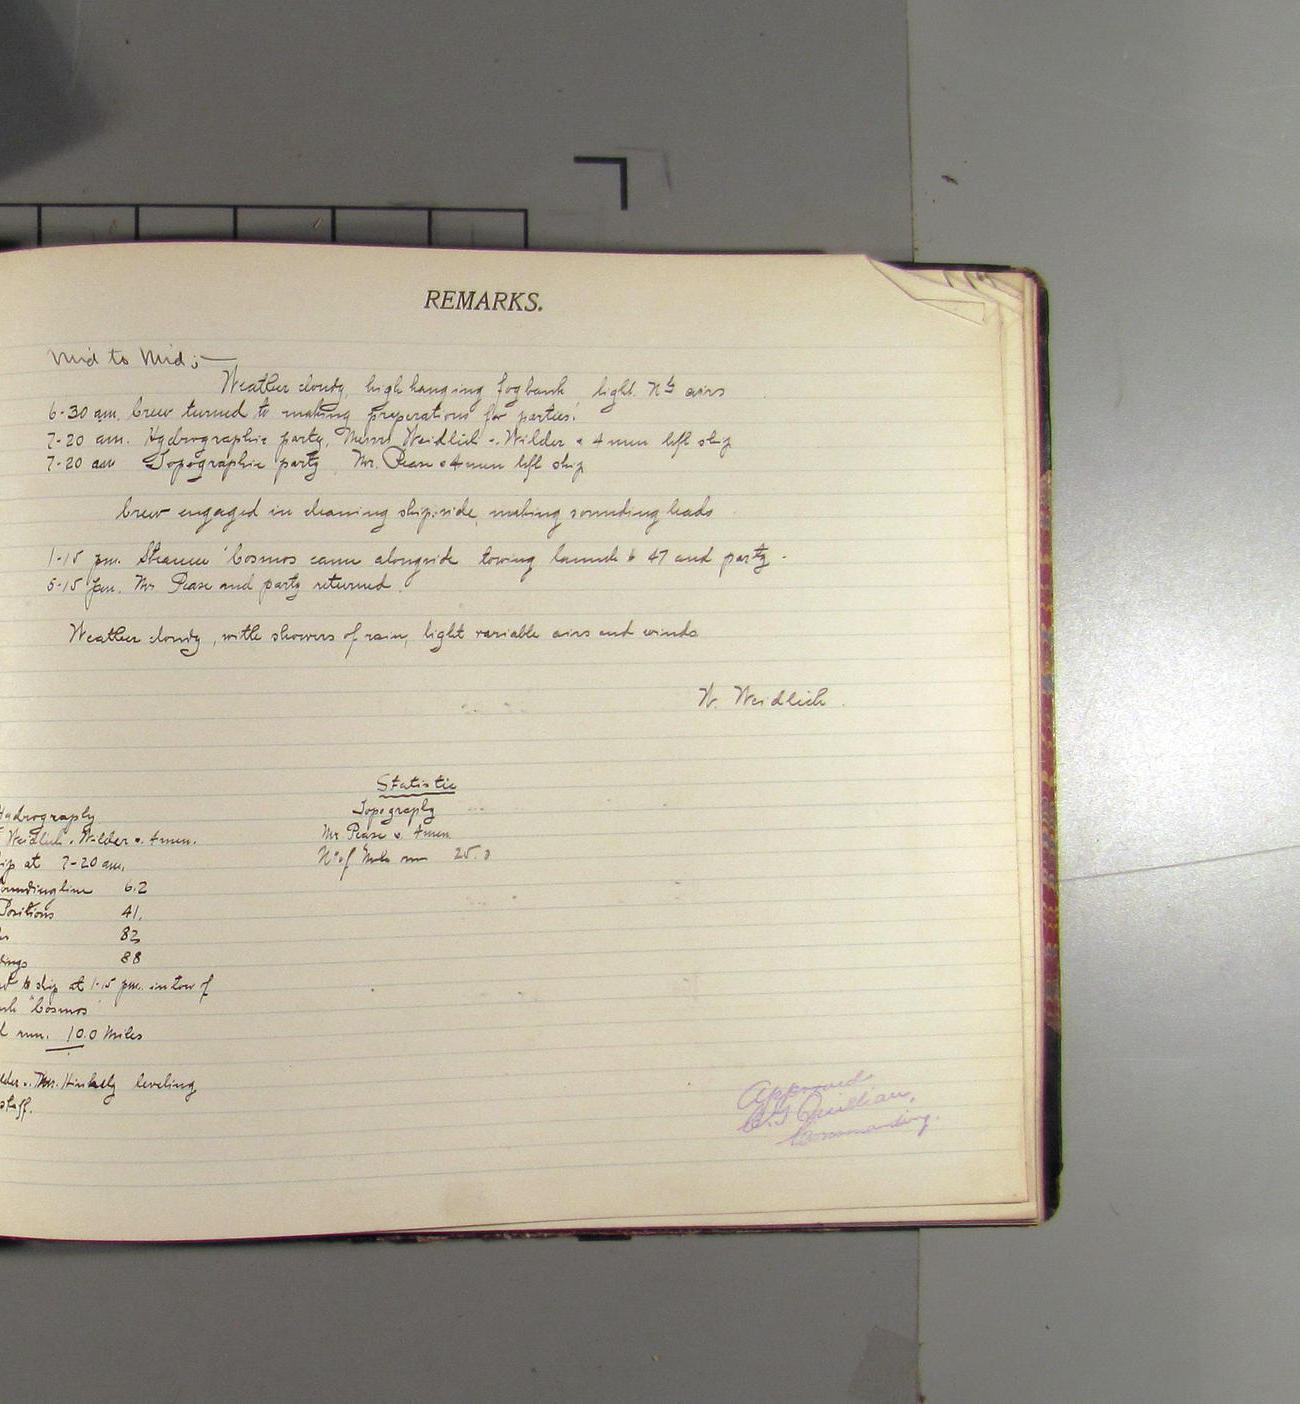 REMARKS.
Mid to Mid;—
Weather cloudy, high hanging fogbank light Nly airs
6-30 am. Crew turned to making preperations for parties.
7-20 am. Hydrographic party, Messrs Weidlich & Wilder & 4 men left ship
7-20 am Topographic party, Mr. Pease & 4 men left ship
Crew engaged in cleaning ship side, making sounding leads
1-15 pm. Steamer "Cosmos came alongside towing launch 47 and party.
5-15 pm. Mr Pease and party returned.
Weather cloudy, with showers of rain, light variable airs and winds
W. Weidlich.
Statistic
Hydrography
Weidlich & Wilder & 4 men.
ip at 7-20 am.
oundingline 6.2
Positions 41.
83
ings 88
to ship at 1-15 pm. in tow of
"Cosmos"
run. 10.0 Miles
leveling
staff.
Topography
Mr Pease & 4 men
No of Miles run 25.0
Approved
Quillian,
Commanding.